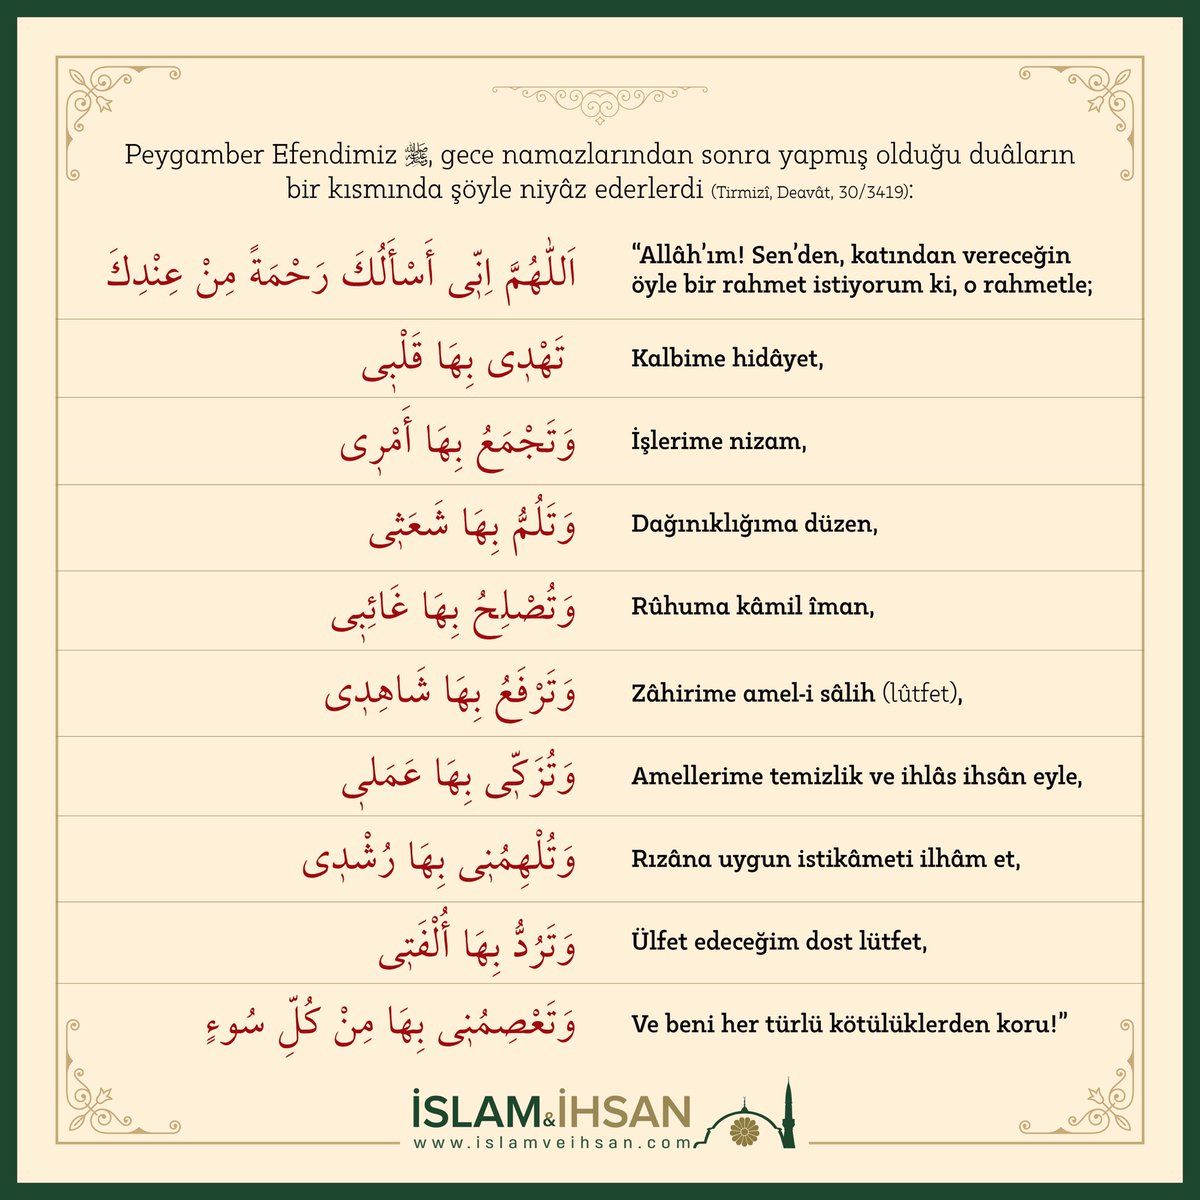 Peygamber Efendimiz ﷺ, gece namazlarından sonra yapmış olduğu duâların
bir kısmında şöyle niyâz ederlerdi (Tirmizî, Deavât, 30/3419):
اَللّٰهُمَّ اِنّ۪ى أَسْأَلُكَ رَحْمَةً مِنْ عِنْدِكَ
“Allâh’ım! Sen’den, katından vereceğin
öyle bir rahmet istiyorum ki, o rahmetle;
تَهْد۪ى بِهَا قَلْب۪ى
Kalbime hidâyet,
وَتَجْمَعُ بِهَا أَمْر۪ى
İşlerime nizam,
وَتَلُمُّ بِهَا شَعَث۪ى
Dağınıklığıma düzen,
وَتُصْلِحُ بِهَا غَائِب۪ى
Rûhuma kâmil îman,
وَتَرْفَعُ بِهَا شَاهِد۪ى
Zâhirime amel-i sâlih (lûtfet),
وَتُزَكّ۪ى بِهَا عَمَل۪ى
Amellerime temizlik ve ihlâs ihsân eyle,
وَتُلْهِمُن۪ى بِهَا رُشْد۪ى
Rızâna uygun istikâmeti ilhâm et,
وَتَرُدُّ بِهَا أُلْفَت۪ى
Ülfet edeceğim dost lütfet,
وَتَعْصِمُن۪ى بِهَا مِنْ كُلِّ سُوءٍ
Ve beni her türlü kötülüklerden koru!”
İSLAM&İHSAN
www.islamveihsan.com